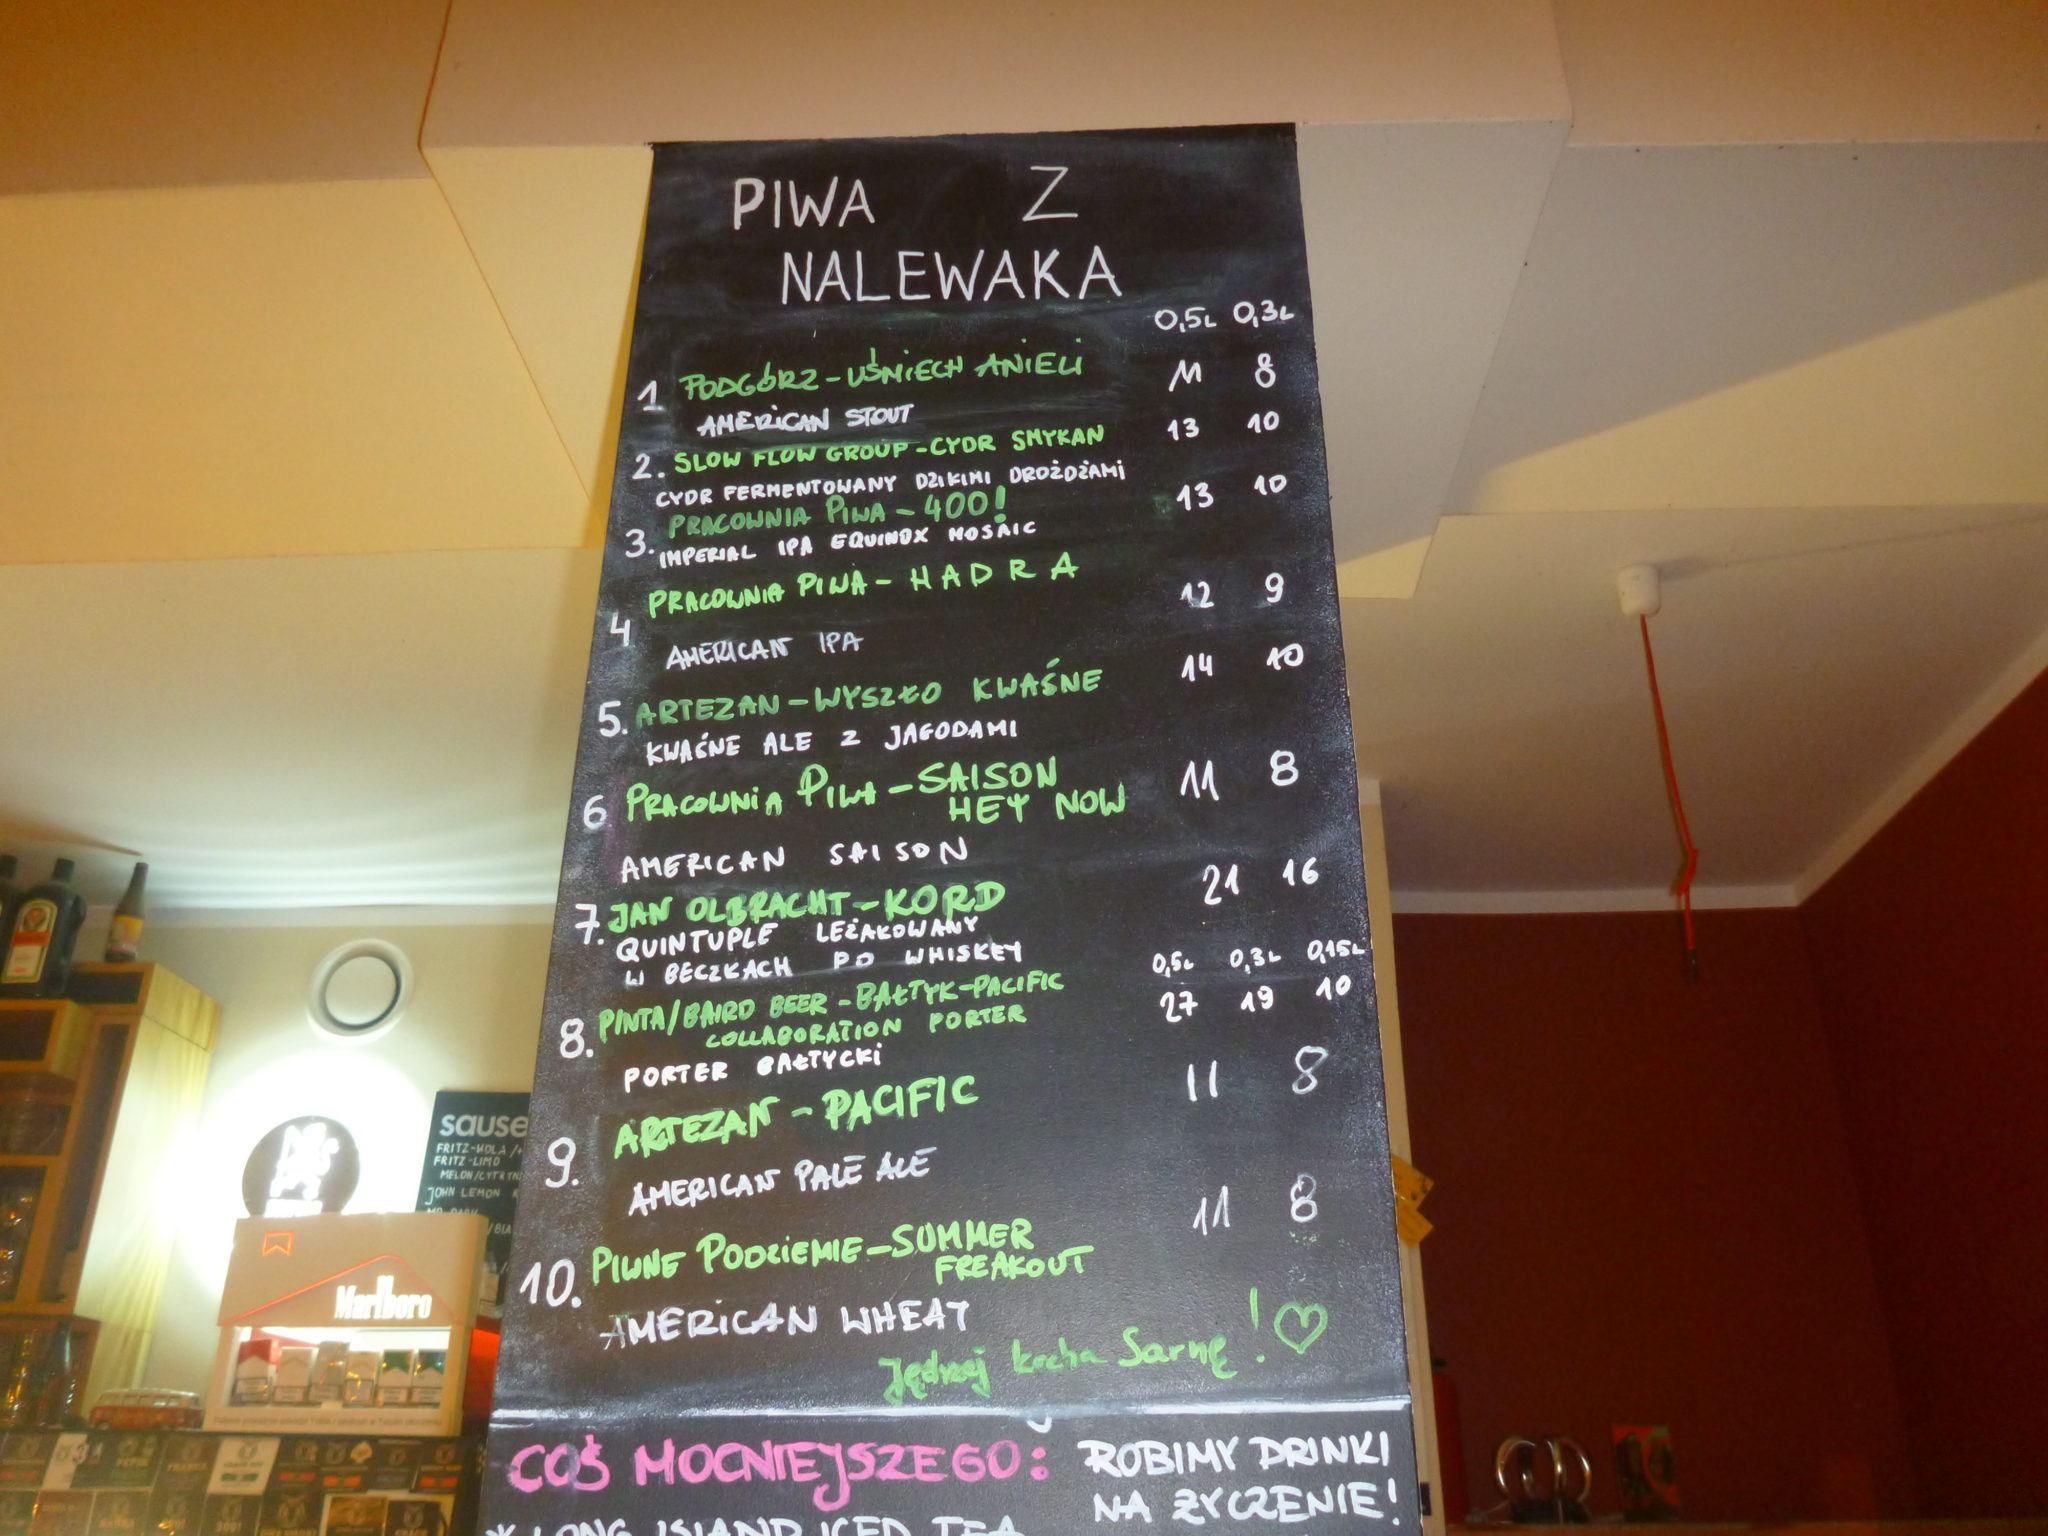 PIWA Z
NALEWAKA
0,5L 0,3L
1 PODGÓRZ - UŚNIECH ANIELI 11 8
AMERICAN STOUT
2. SLOW FLOW GROUP - CYDR SMYKAN 13 10
CYDR FERMENTOWANY DZIKIMI DROŻDŻAMI
3. PRACOWNIA PIWA - 400! 13 10
IMPERIAL IPA EQUINOX MOSAIC
4 PRACOWNIA PIWA - HADRA 12 9
AMERICAN IPA
5. ARTEZAN - WYSZŁO KWAŚNE 14 10
KWAŚNE ALE Z JAGODAMI
6 PRACOWNIA PIWA - SAISON 11 8
HEY NOW
AMERICAN SAISON
7. JAN OLBRACHT - KORD 21 16
QUINTUPLE LEŻAKOWANY
W BECZKACH PO WHISKEY
0,5L 0,3L 0,15L
8. PINTA/BAIRD BEER - BAŁTYK-PACIFIC 27 19 10
COLLABORATION PORTER
PORTER BAŁTYCKI
9. ARTEZAN - PACIFIC 11 8
AMERICAN PALE ALE
10. PIWNE PODZIEMIE - SUMMER 11 8
FREAKOUT
AMERICAN WHEAT
Jędrzej kocha Sarnę! ♡
COŚ MOCNIEJSZEGO: ROBIMY DRINKI
NA ŻYCZENIE!
* LONG ISLAND ICED TEA
sause
FRITZ-KOLA /
FRITZ-LIMO
MELON/CYTRYN
JOHN LEMON
Marlboro